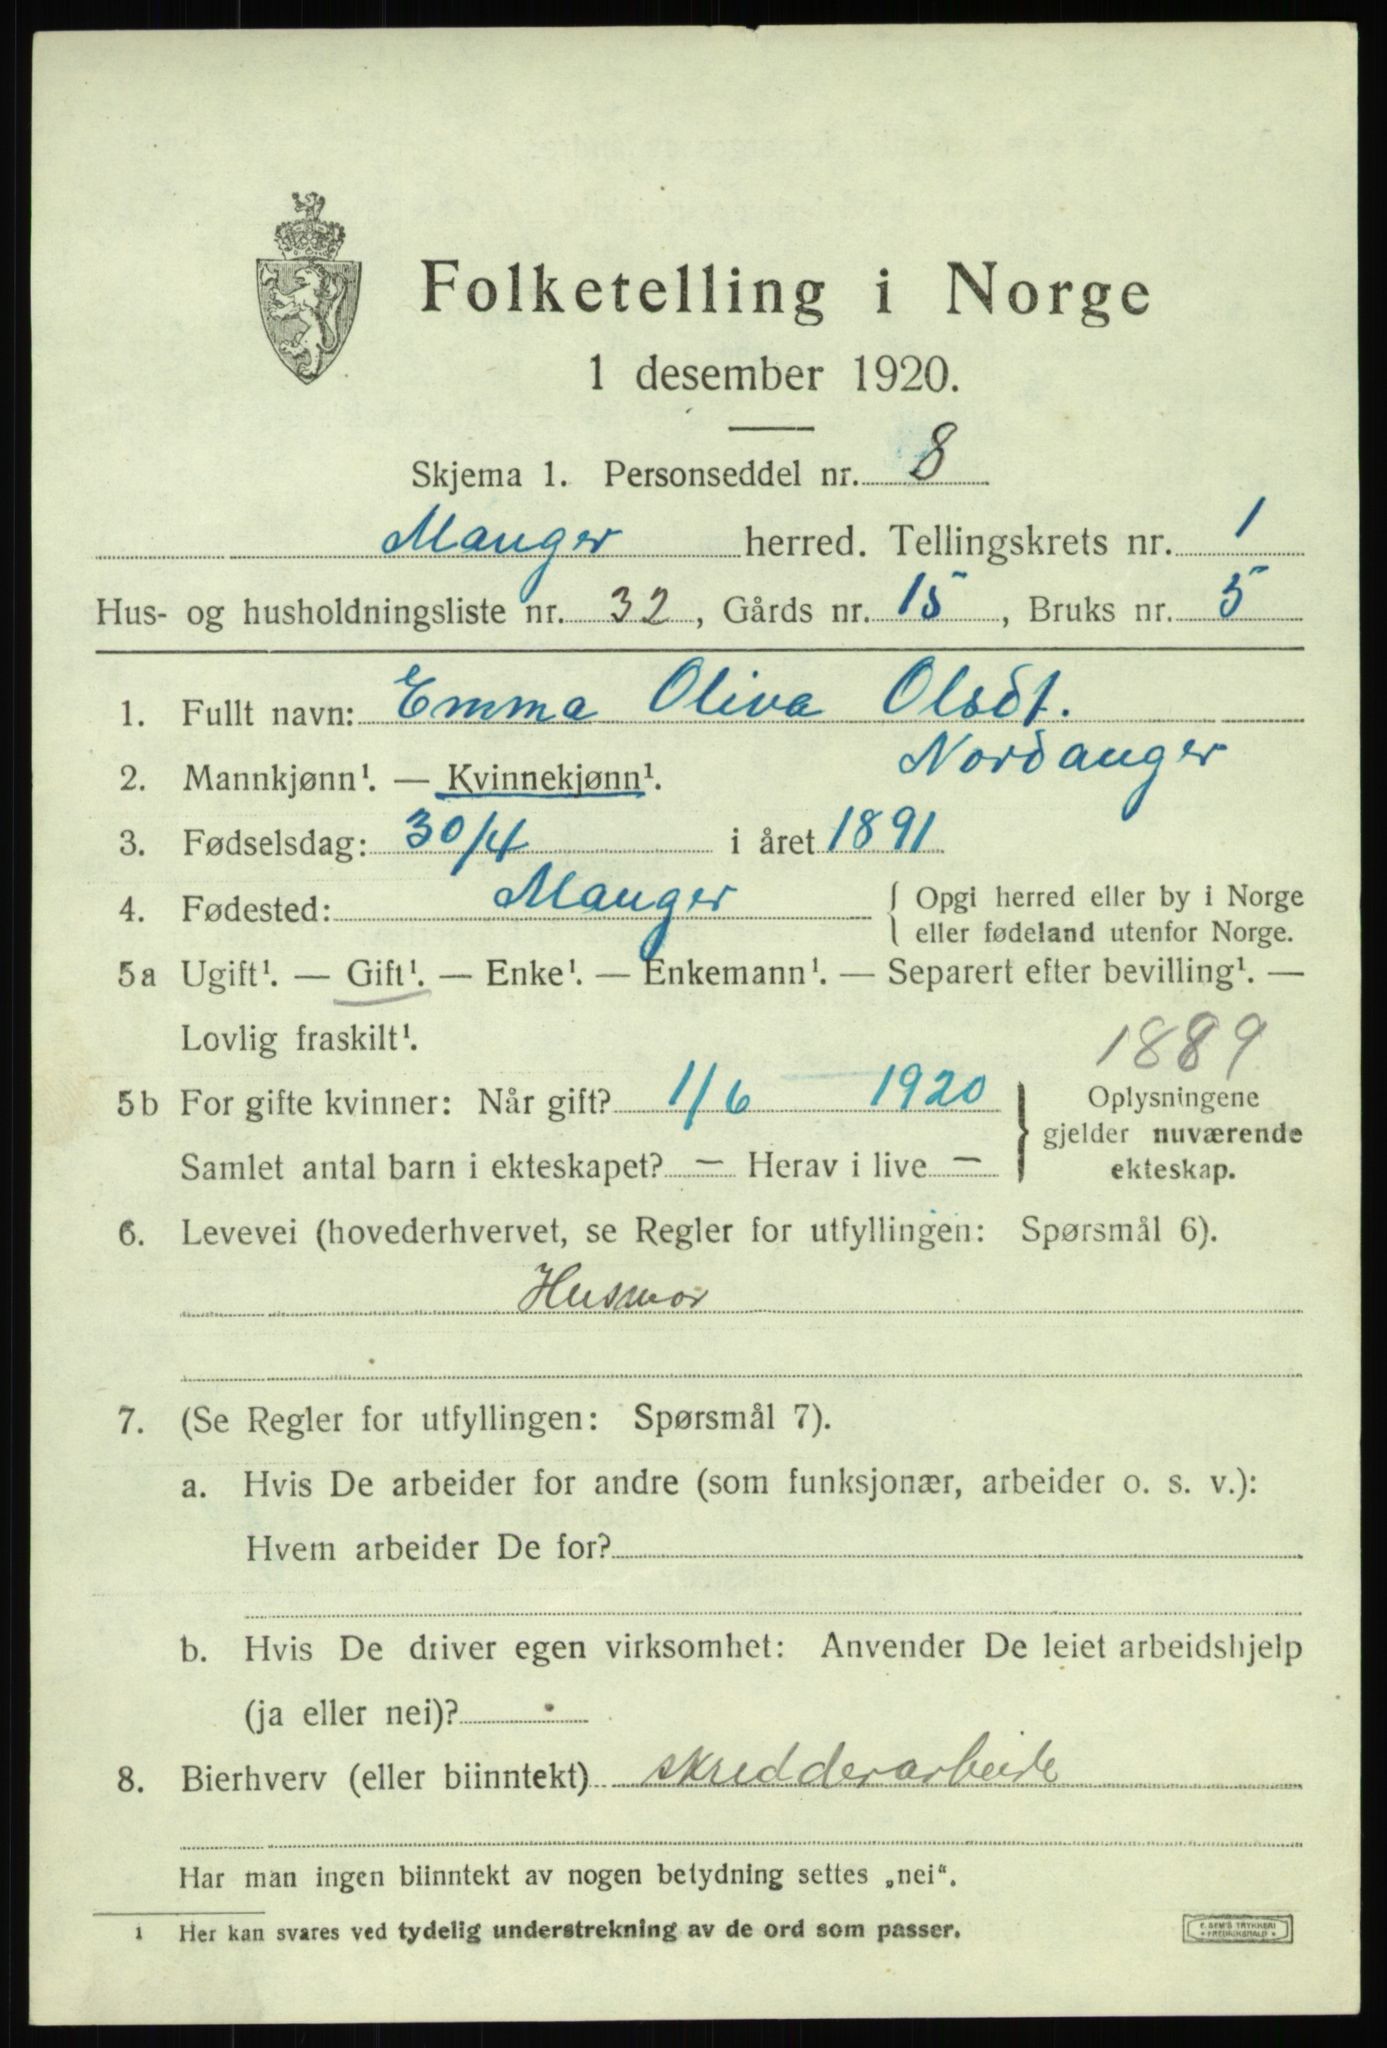 Folketelling i Norge
1 desember 1920.
Skjema 1. Personseddel nr. 8
Manger herred. Tellingskrets nr. 1
Hus- og husholdningsliste nr. 32, Gårds nr. 15, Bruks nr. 5
1. Fullt navn: Emma Oliva Olsdt.
Nordanger
2. Mannkjønn¹. — Kvinnekjønn¹.
3. Fødselsdag: 30/4 i året 1891
4. Fødested: Manger { Opgi herred eller by i Norge
eller fødeland utenfor Norge.
5a Ugift¹. — Gift¹. — Enke¹. — Enkemann¹. — Separert efter bevilling¹. —
Lovlig fraskilt¹.
1889
5b For gifte kvinner: Når gift? 1/6 1920 } Oplysningene
gjelder nuværende
Samlet antal barn i ekteskapet? — Herav i live — ekteskap.
6. Levevei (hovederhvervet, se Regler for utfyllingen: Spørsmål 6).
Husmor
7. (Se Regler for utfyllingen: Spørsmål 7).
a. Hvis De arbeider for andre (som funksjonær, arbeider o. s. v.):
Hvem arbeider De for?
b. Hvis De driver egen virksomhet: Anvender De leiet arbeidshjelp
(ja eller nei)?
8. Bierhverv (eller biinntekt) skredderarbeide
Har man ingen biinntekt av nogen betydning settes „nei“.
1 Her kan svares ved tydelig understrekning av de ord som passer.
E. SEM'S TRYKKERI
FREDRIKSHALD